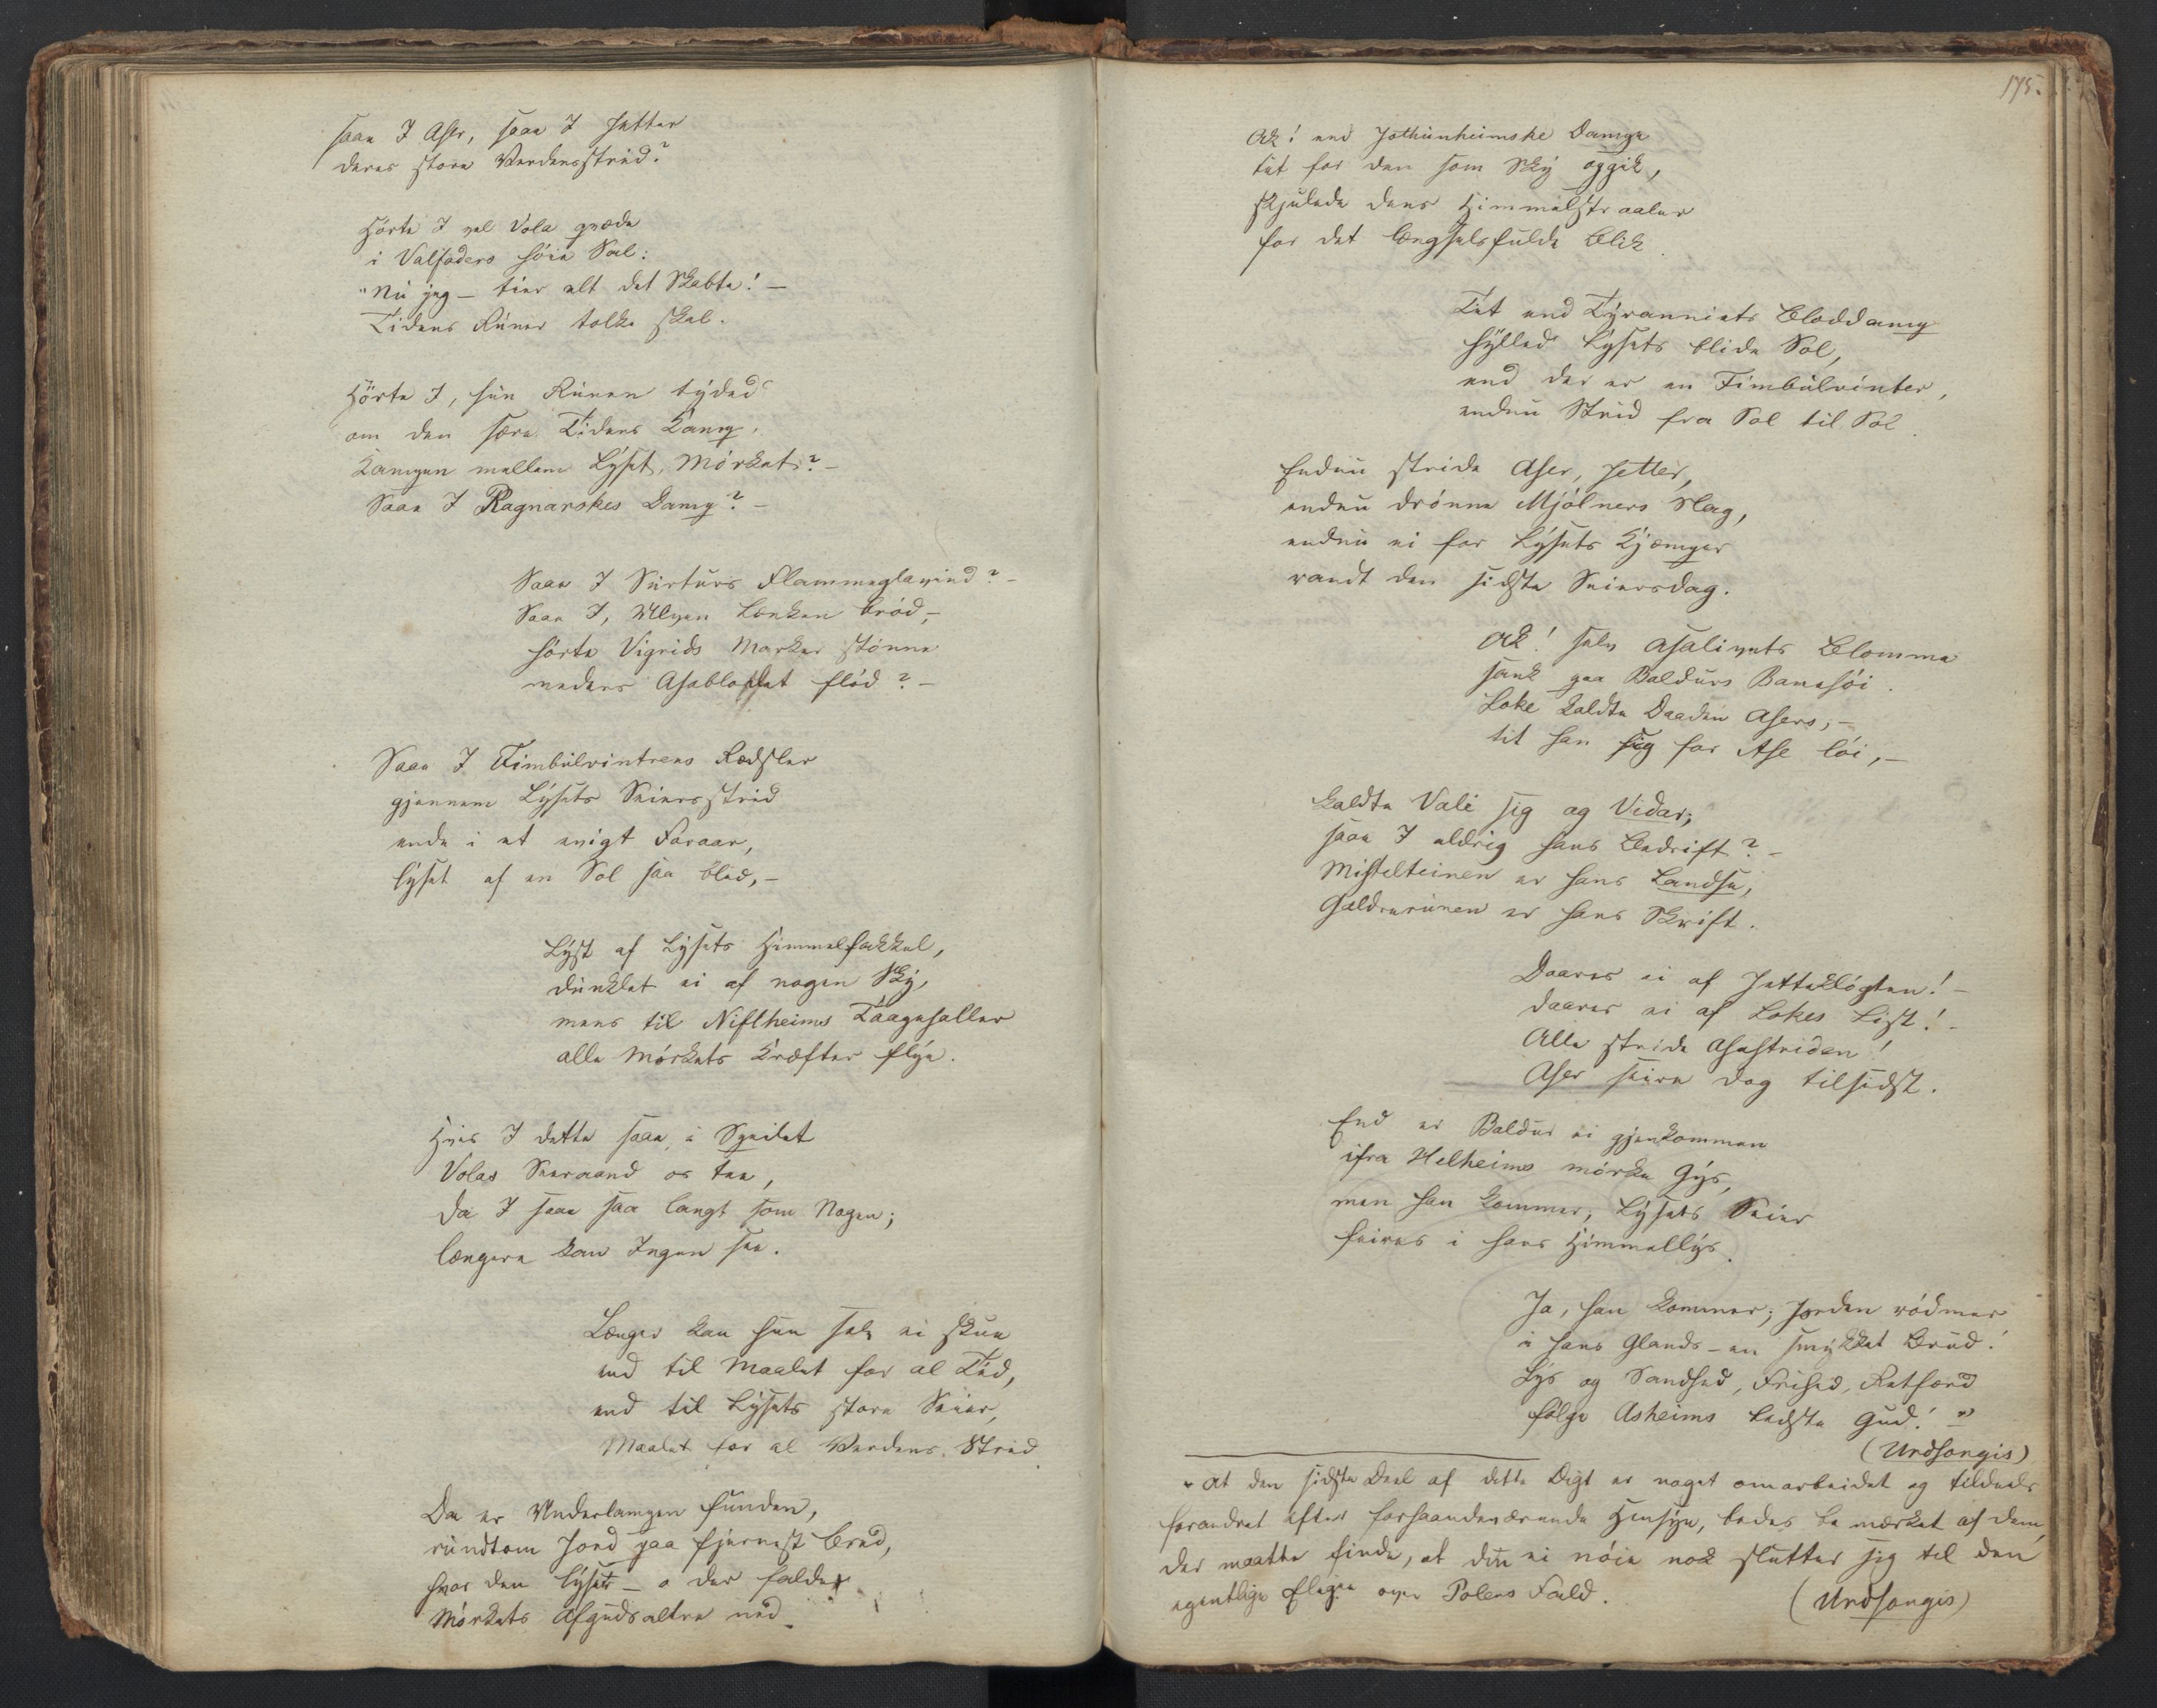 saae I Aser, saae I Jetter
deres store Verdensstrid?
Hörte I vel Vola qvæde
i Valfaders höie Sal:
"Nu jeg – tier alt det Skabte! –
Tidens Runer tolke skal.
Hörte I, hun Runen tyded
om den svære Tidens Kamp,
Kampen mellem Lyset, Mörket? –
Saae I Ragnarokes Damp? –
Saae I Surturs Flammeglavind? –
Saae I, Ulven Lænken bröd, –
hörte Vigrids Marker stönne
medens Asablodet flöd? –
Saae I Fimbulvintrens Rædsler
gjennem Lysets Seiersstrid
ende i et evigt Foraar,
lyset af en Sol saa blid, –
Lyst af Lysets Himmelfakkel,
dunklet ei af nogen Sky,
mens til Niflheims Taagehaller
alle Mörkets Kræfter flye.
Hvis I dette saae, i Speilet
Volas Seeraand os tee,
da I saae saa langt som Nogen;
længere kan Ingen see.
Længer kan hun selv ei skue
end til Maalet for al Tid,
end til Lysets store Seier,
Maalet for al Verdens Strid.
Da er Underlampen funden,
rundtom Jord paa fjernest Bred,
hvor den lyser – o der falder
Mörkets Afgudsaltre ned.
175.
Ak! end Jothunheimske Dampe
tæt for den som Sky opgik,
skjulede dens Himmelstraaler
for det længselsfulde Blik.
Tæt end Tyranniets Bloddamp
hylled Lysets blide Sol,
end der er en Fimbulvinter,
endnu Strid fra Sol til Sol.
Endnu stride Aser, Jetter,
endnu drönne Mjölners Slag,
endnu ei for Lysets Kjæmper
randt den sidste Seiersdag.
Ak! selv Asalivets Blomme
sank paa Baldurs Banehöi.
Loke kaldte Daaden Asers, –
tit han sig for Ase löi, –
kaldte Vali sig og Vidar;
saae I aldrig hans Bedrift? –
Mistelteinen er hans Landse,
Galdrerunen er hans Skrift.
Daares ei af Jetteklögten! –
daares ei af Lokes List! –
Alle stride Asastriden!
Aser seire dog tilsidst.
End er Baldur ei gjenkommen
ifra Helheims mörke Gys,
men han kommer, Lysets Seier
feires i hans Himmellys.
Ja, han kommer; Jorden rödmer
i hans Glands – en smykket Brud!
Lys og Sandhed, Frihed, Retfærd
fölge Asheims bedste Gud! "
(Urdsongis)
* At den sidste Deel af dette Digt er noget omarbeidet og tildeels
forandret efter forhaandenværende Hensyn, bedes bemærket af dem,
der maatte finde, at den ei nöie nok slutter sig til den
egentlige Elegie over Polens Fald.
(Urdsongis)